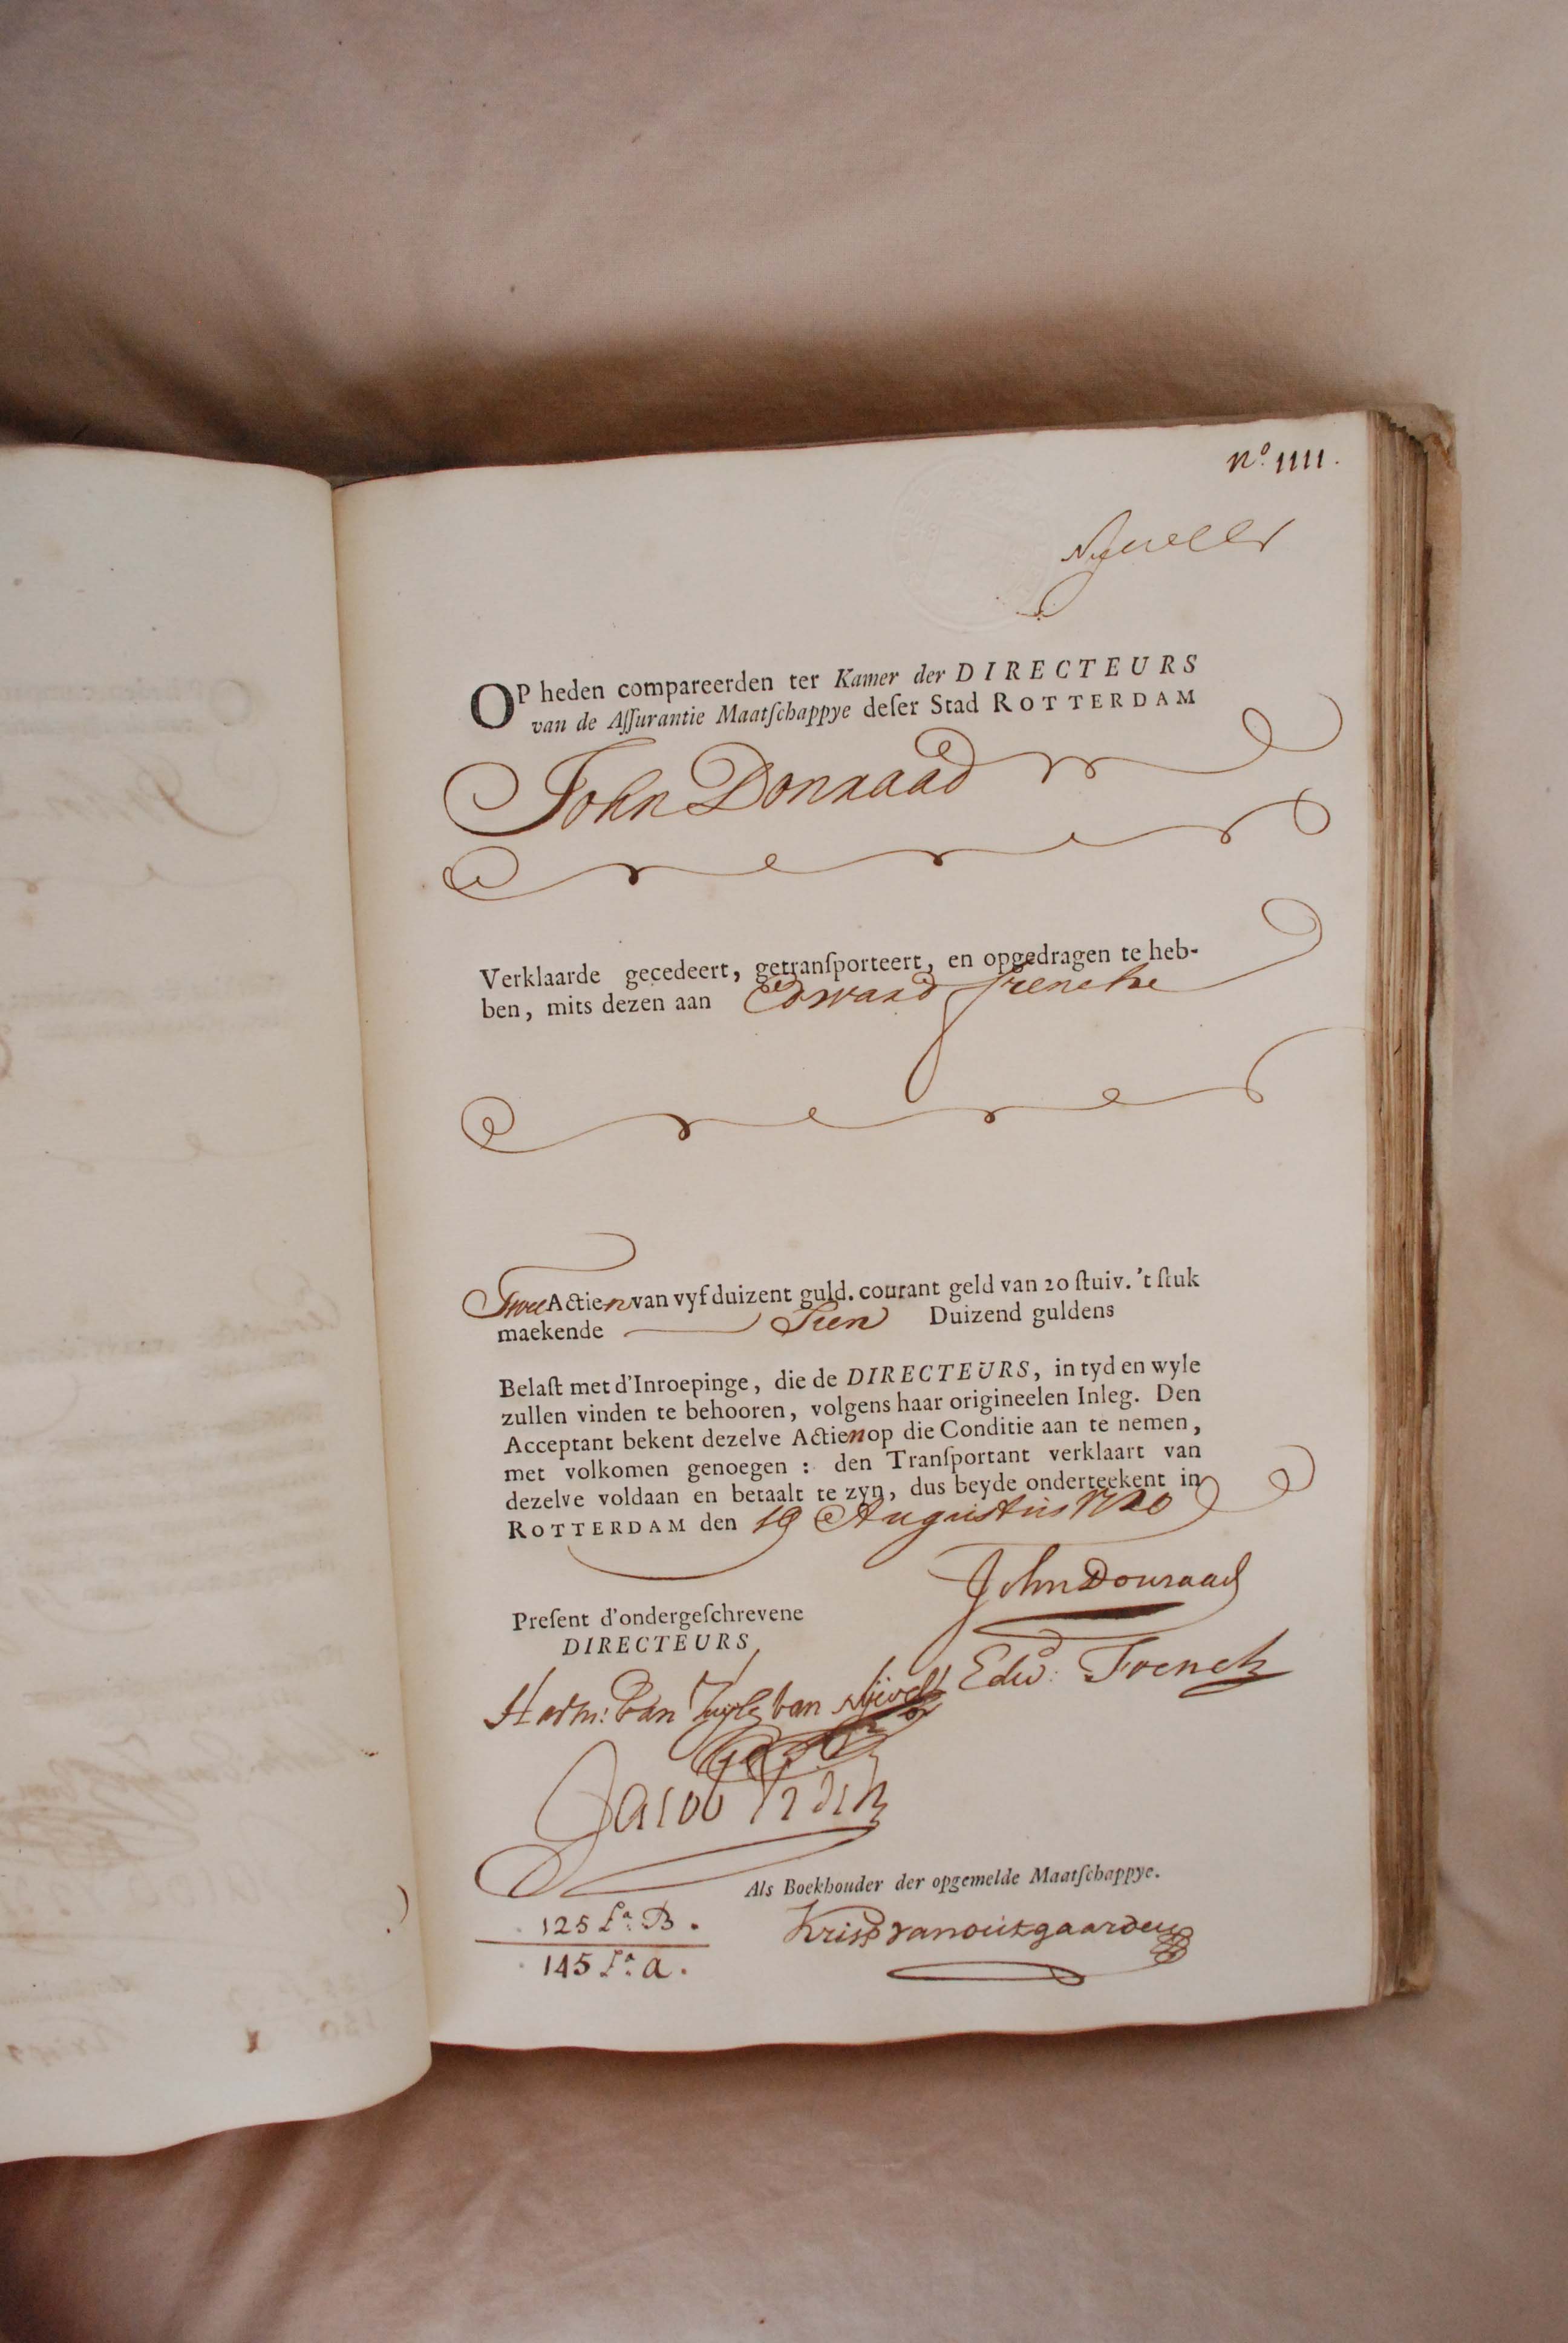 nº 1111.
OP heden compareerden ter Kamer der DIRECTEURS
van de Aſſurantie Maatſchappye deſer Stad ROTTERDAM
John Donraad
Verklaarde gecedeert, getranſporteert, en opgedragen te heb-
ben, mits dezen aan Edwaad frenche
Twee Actien van vyf duizent guld. courant geld van 20 ſtuiv. 't ſtuk
maekende Tien Duizend guldens
Belaſt met d'Inroepinge, die de DIRECTEURS, in tyd en wyle
zullen vinden te behooren, volgens haar origineelen Inleg. Den
Acceptant bekent dezelve Actien op die Conditie aan te nemen,
met volkomen genoegen : den Tranſportant verklaart van
dezelve voldaan en betaalt te zyn, dus beyde onderteekent in
ROTTERDAM den 19 Augustus 1720
John Donraad
Preſent d'ondergeſchrevene
DIRECTEURS
Edw: French
Harm: Van Zuylen van Nijevelt
Jacob
Als Boekhouder der opgemelde Maatſchappye.
125 Lª. B.
Kriſp vanoutgaarden
145 Lª. a.